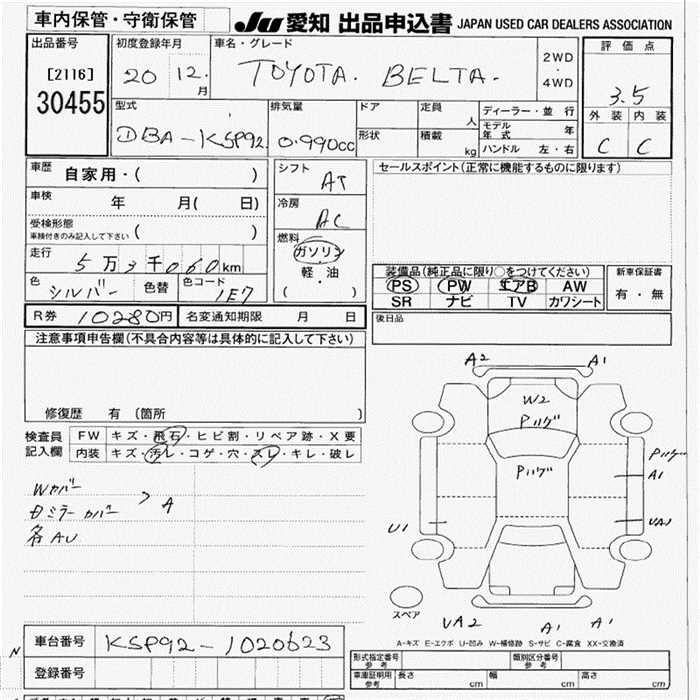 車内保管・守衛保管
JU 愛知 出品申込書 JAPAN USED CAR DEALERS ASSOCIATION
出品番号
[2116]
30455
初度登録年月
20 12.
月
車名・グレード
TOYOTA. BELTA.
2WD
・
4WD
評価点
3.5
外装 内装
C C
型式
DBA-KSP92
排気量
0.990cc
ドア
形状
定員
人
積載
kg
ディーラー・並行
モデル年式 年
ハンドル 左・右
車歴
自家用・( )
車検
年 月( 日)
受検形態
車検付きのみ記入して下さい
( )
走行
5万3千060km
色
シルバー
色替
色コード
1E7
シフト
AT
冷房
AC
燃料
ガソリン
・
軽・油
( )
セールスポイント(正常に機能するものに限ります)
装備品(純正品に限り○をつけてください)
PS PW エアB AW
SR ナビ TV カワシート
新車保証書
有・無
後日品
R券 10280円
名変通知期限 月 日
注意事項申告欄(不具合内容等は具体的に記入して下さい)
修復歴 有 (箇所 )
検査員
記入欄
FW キズ・飛石・ヒビ割・リペア跡・X要
内装 キズ・汚レ・コゲ・穴・スレ・キレ・破レ
Wカバー
ミラーカバー
> A
各AU
A2
A1
W2
Pハゲ
Pハゲ
Pハゲ
A1
UA1
U1
スペア
UA2
A1
A1
A-キズ E-エクボ U-凹み W-補修跡 S-サビ C-腐食 XX-交換済
N
車台番号
KSP92-1020623
登録番号
形式指定番号
参考
類別区分番号
参考
車庫証明用
参考
長さ cm
幅 cm
高さ cm